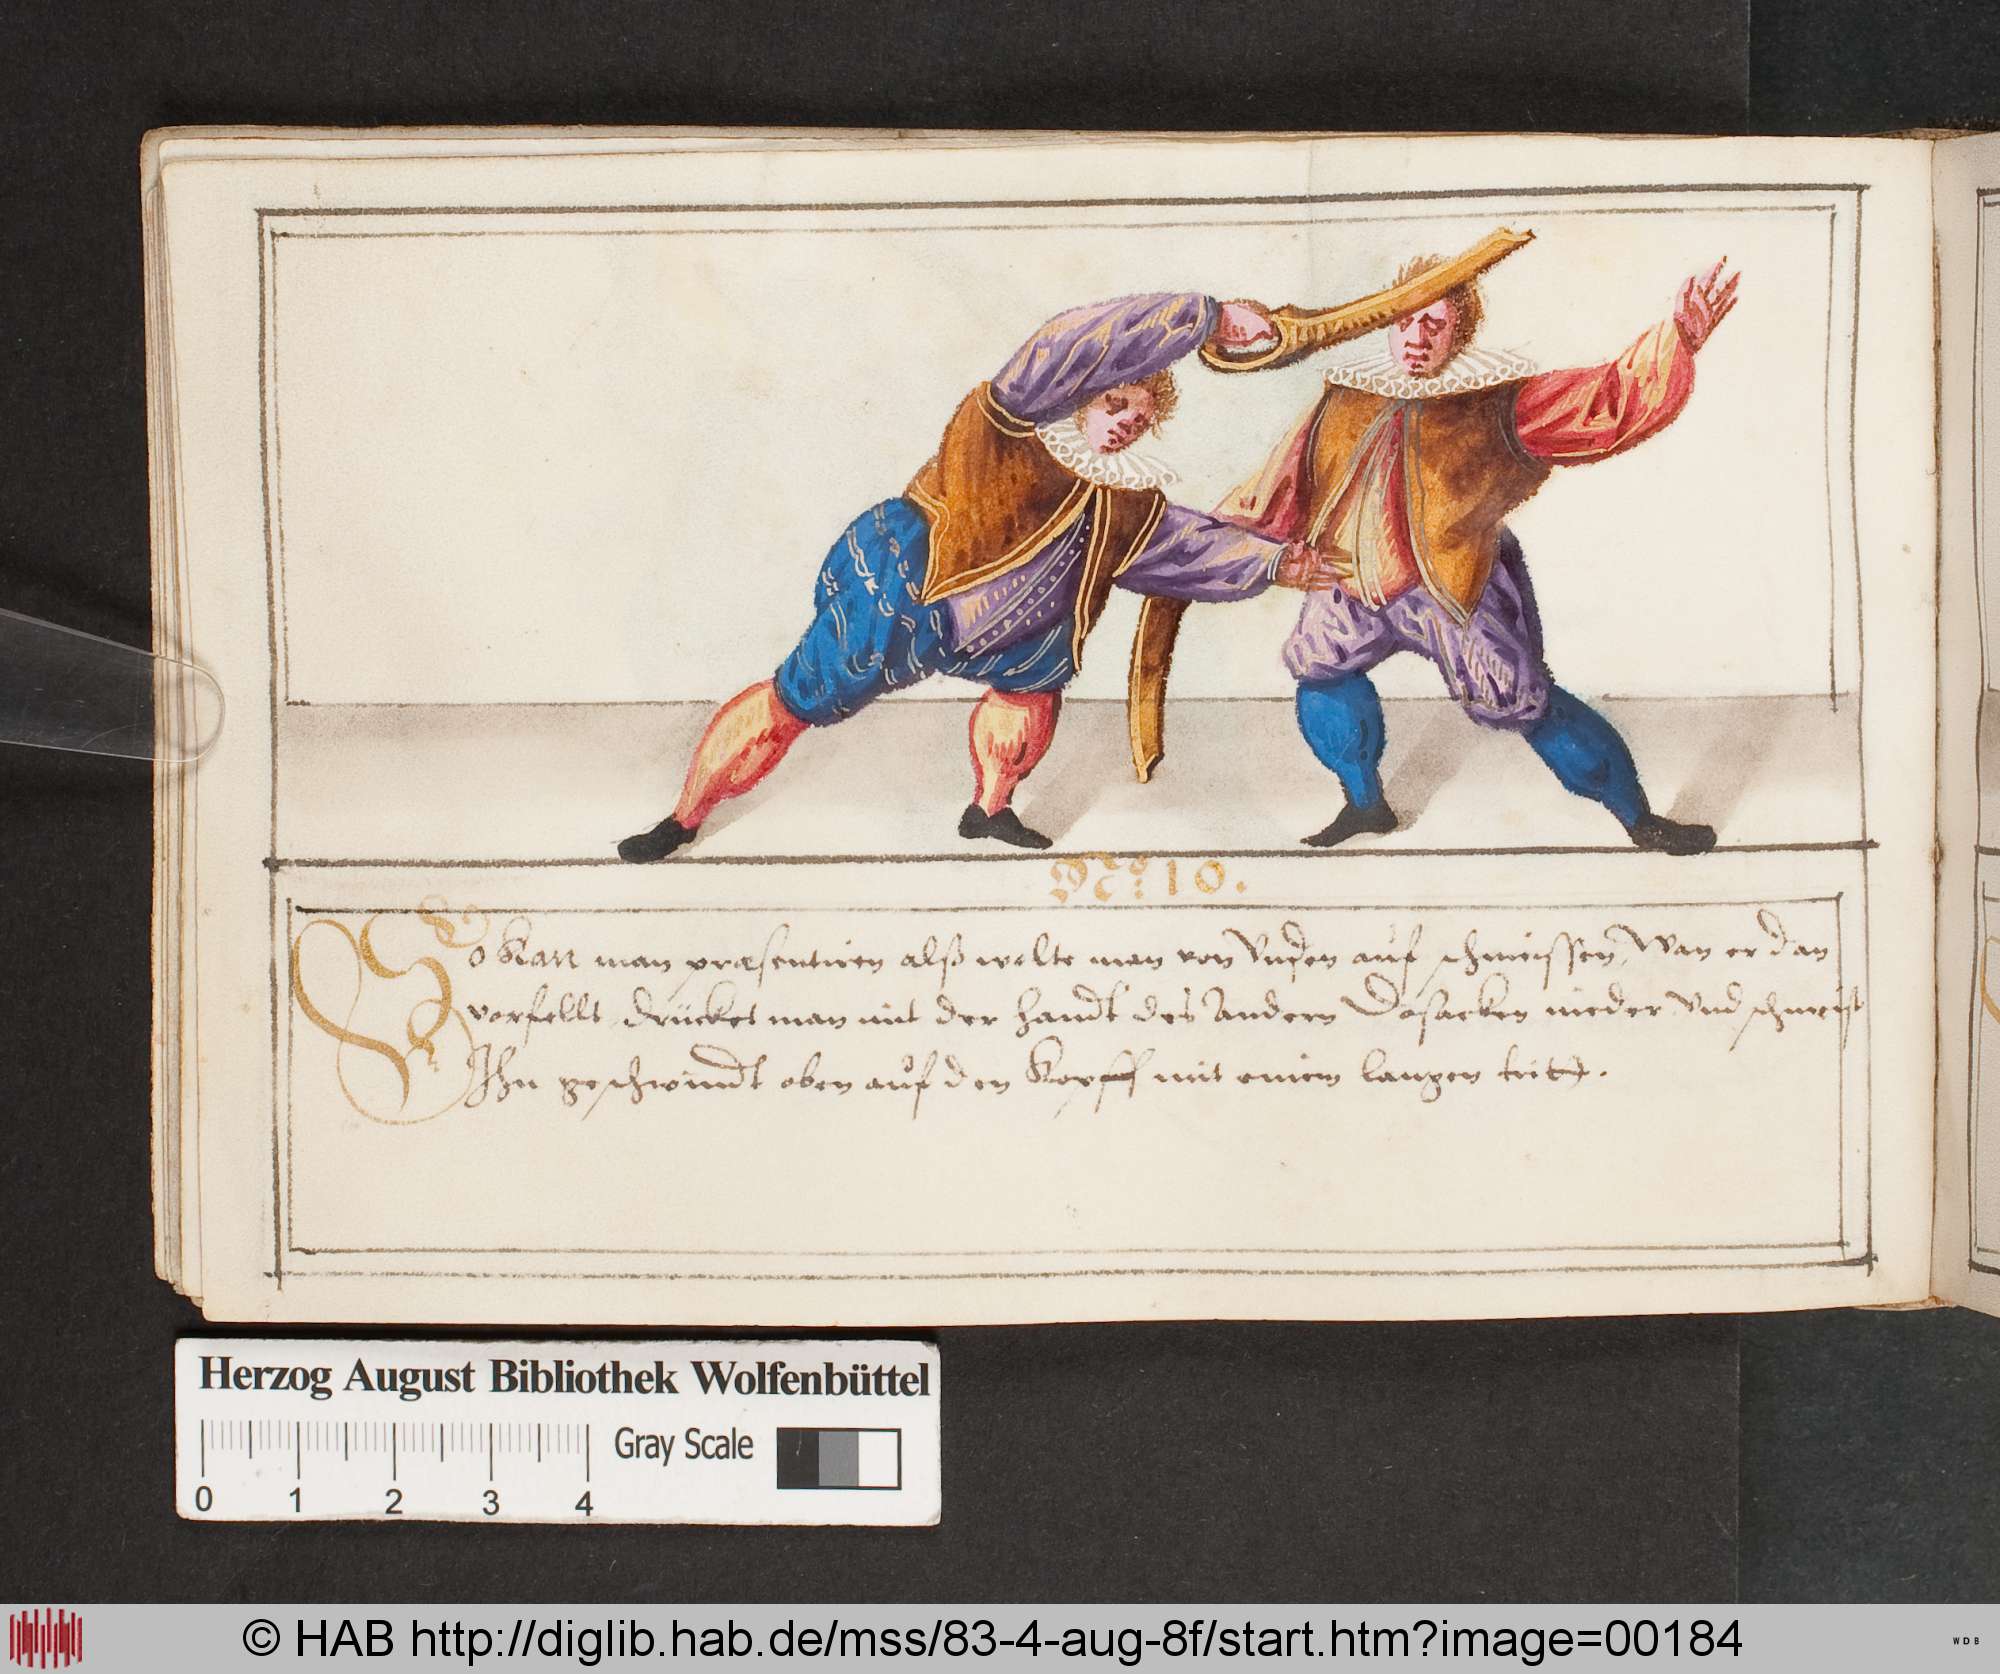 No. 10.
So Kan man præsentiren alß wolte man von Vnden auf schmeissen, Wan er dan
vorfellt, drücket man mit der handt des Andern Dosacken nieder Vnd schmeist
Ihn geschwindt oben auf den Kopff mit einem langen tritt.
Herzog August Bibliothek Wolfenbüttel
Gray Scale
0 1 2 3 4
© HAB http://diglib.hab.de/mss/83-4-aug-8f/start.htm?image=00184
WDB